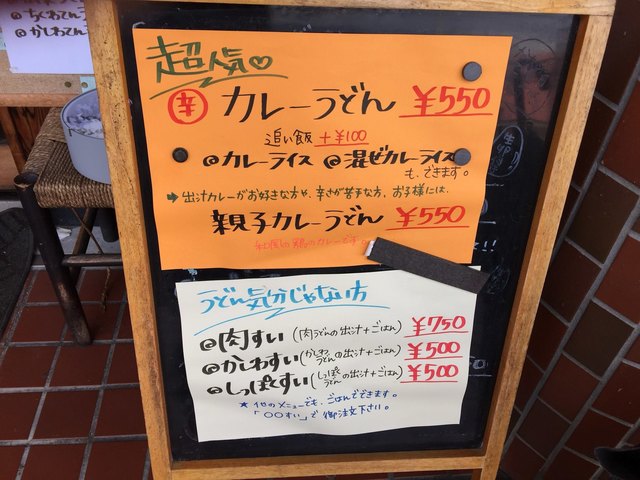 ちくわてん
かしわてん
超人気♡
辛 カレーうどん ¥550
追い飯 +¥100
◎カレーライス ◎混ぜカレーライス
も、できます。
➡ 出汁カレーがお好きな方や、辛さが苦手な方、お子様には、
親子カレーうどん ¥550
和風の鶏のカレーです。
うどん気分じゃない方
◎肉すい (肉うどんの出汁+ごはん) ¥750
◎かしわすい (かしわうどんの出汁+ごはん) ¥500
◎しっぽくすい (しっぽくうどんの出汁+ごはん) ¥500
★他のメニューでも、ごはんでできます。
「○○すい」で御注文下さい。